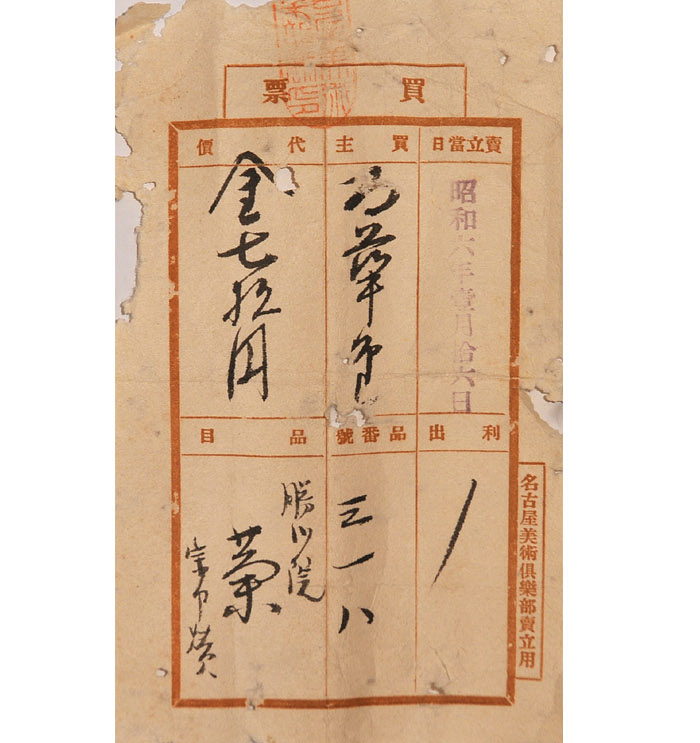 買票
賣立當日
昭和六年壹月拾六日
買主
代價
金七拾円
利出
品番號
三一八
品目
勝川院
名古屋美術倶樂部賣立用